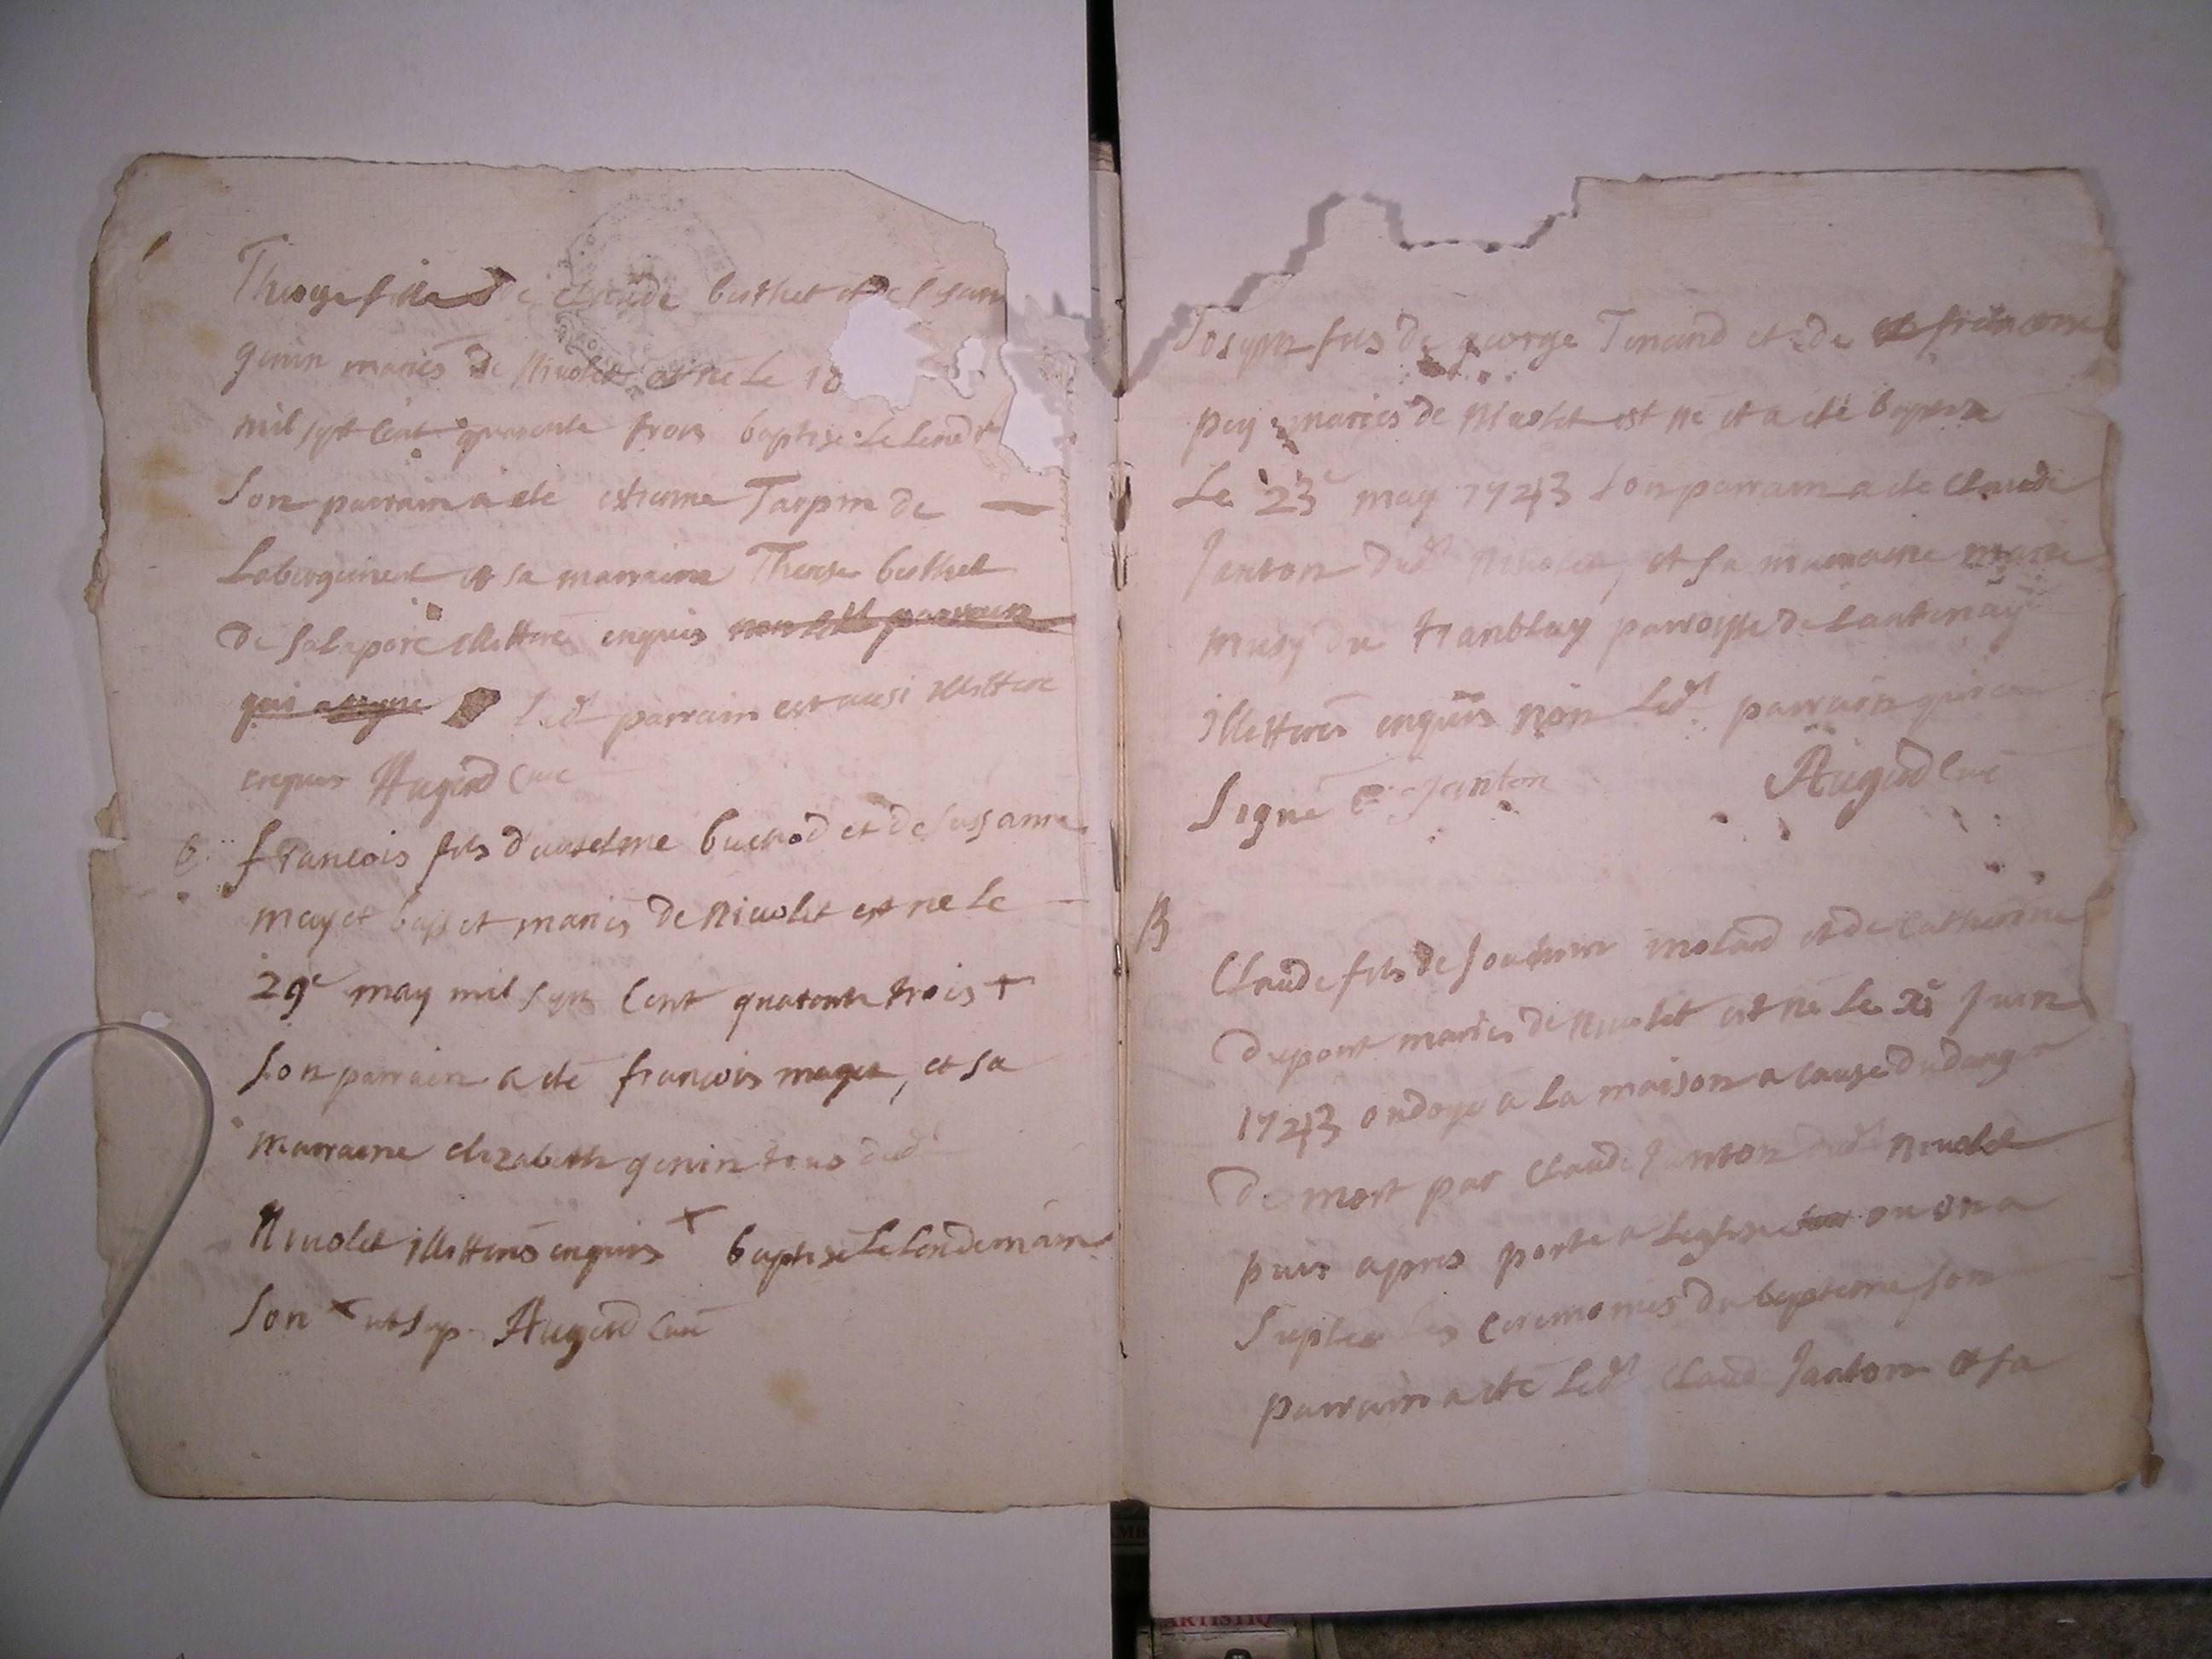 Therese fille de claude berthet et de susan
genin mariés de Nivolet est né le 18
mil sept cent quarente trois baptisé le lend
son parrain a eté etienne Tarpin de
Labergement et sa marraine Therese berthet
de Salapore illitteré enquis non led parrain
qui a signe led parrain est aussi illitteré
enquis Augerd curé
B francois fils d'anselme buchod et de susanne
mayet basset mariés de Nivolet est né le
29e may mil sept cent quarente trois +
son parrain a eté francois mayet, et sa
marraine elizabeth genin tous dud
Nivolet illitterés enquis + baptisé le lendemain
son + ut sup. Augerd curé
Joseph fils de george Tenand et de
pey mariés de Nivolet est né et a eté baptisé
Le 23e may 1743 son parrain a eté Claude
Janton dud Nivolet, et sa marraine marie
musy du tranblay parroisse de Lantenay
illitterés enquis non led parrain qui a
signé C Janton Augerd curé
B
Claude fils de Joachim molard et de Catherine
dupont mariés de Nivolet est né le Juin
1743 ondoyé a la maison a cause du danger
de mort par Claude Janton dud Nivolet
puis apres porté a leglise ou on a
suplée les ceremonies du baptême son
parrain a eté led Claude Janton et sa
ARTISTIQ